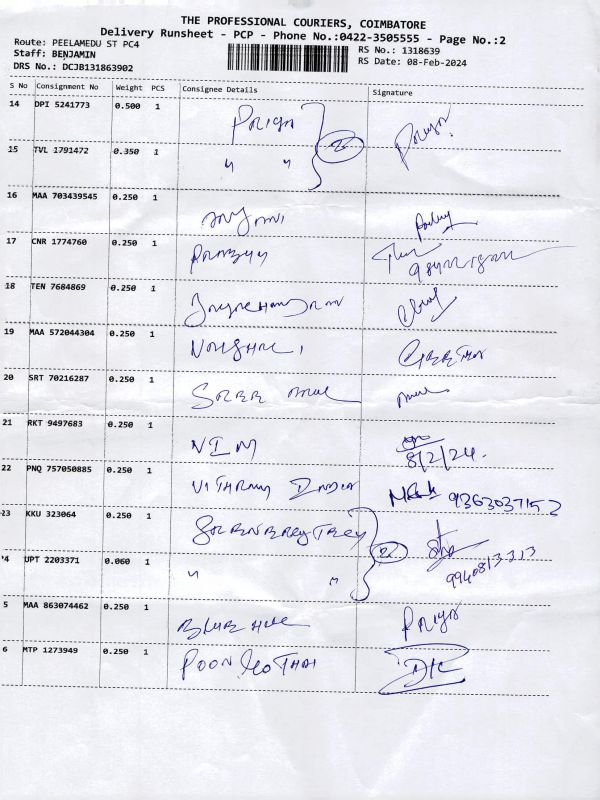 THE PROFESSIONAL COURIERS, COIMBATORE
Delivery Runsheet - PCP - Phone No.:0422-3505555 - Page No.:2
Route: PEELAMEDU ST PC4
Staff: BENJAMIN
DRS No.: DCJB131863902
RS No.: 1318639
RS Date: 08-Feb-2024
S No Consignment No Weight PCS Consignee Details Signature
14 DPI 5241773 0.500 1 PRIYA 2 Priya
15 TVL 1791472 0.350 1 " "
16 MAA 703439545 0.250 1
17 CNR 1774760 0.250 1
18 TEN 7684869 0.250 1
19 MAA 572044304 0.250 1 GEETHA
20 SRT 70216287 0.250 1 SREE
21 RKT 9497683 0.250 1 NIM 8/2/24.
22 PNQ 757050885 0.250 1 9363037152
23 KKU 323064 0.250 1 2
4 UPT 2203371 0.060 1 " " 9940813313
5 MAA 863074462 0.250 1 Priya
6 MTP 1273949 0.250 1 POONGOTHAI